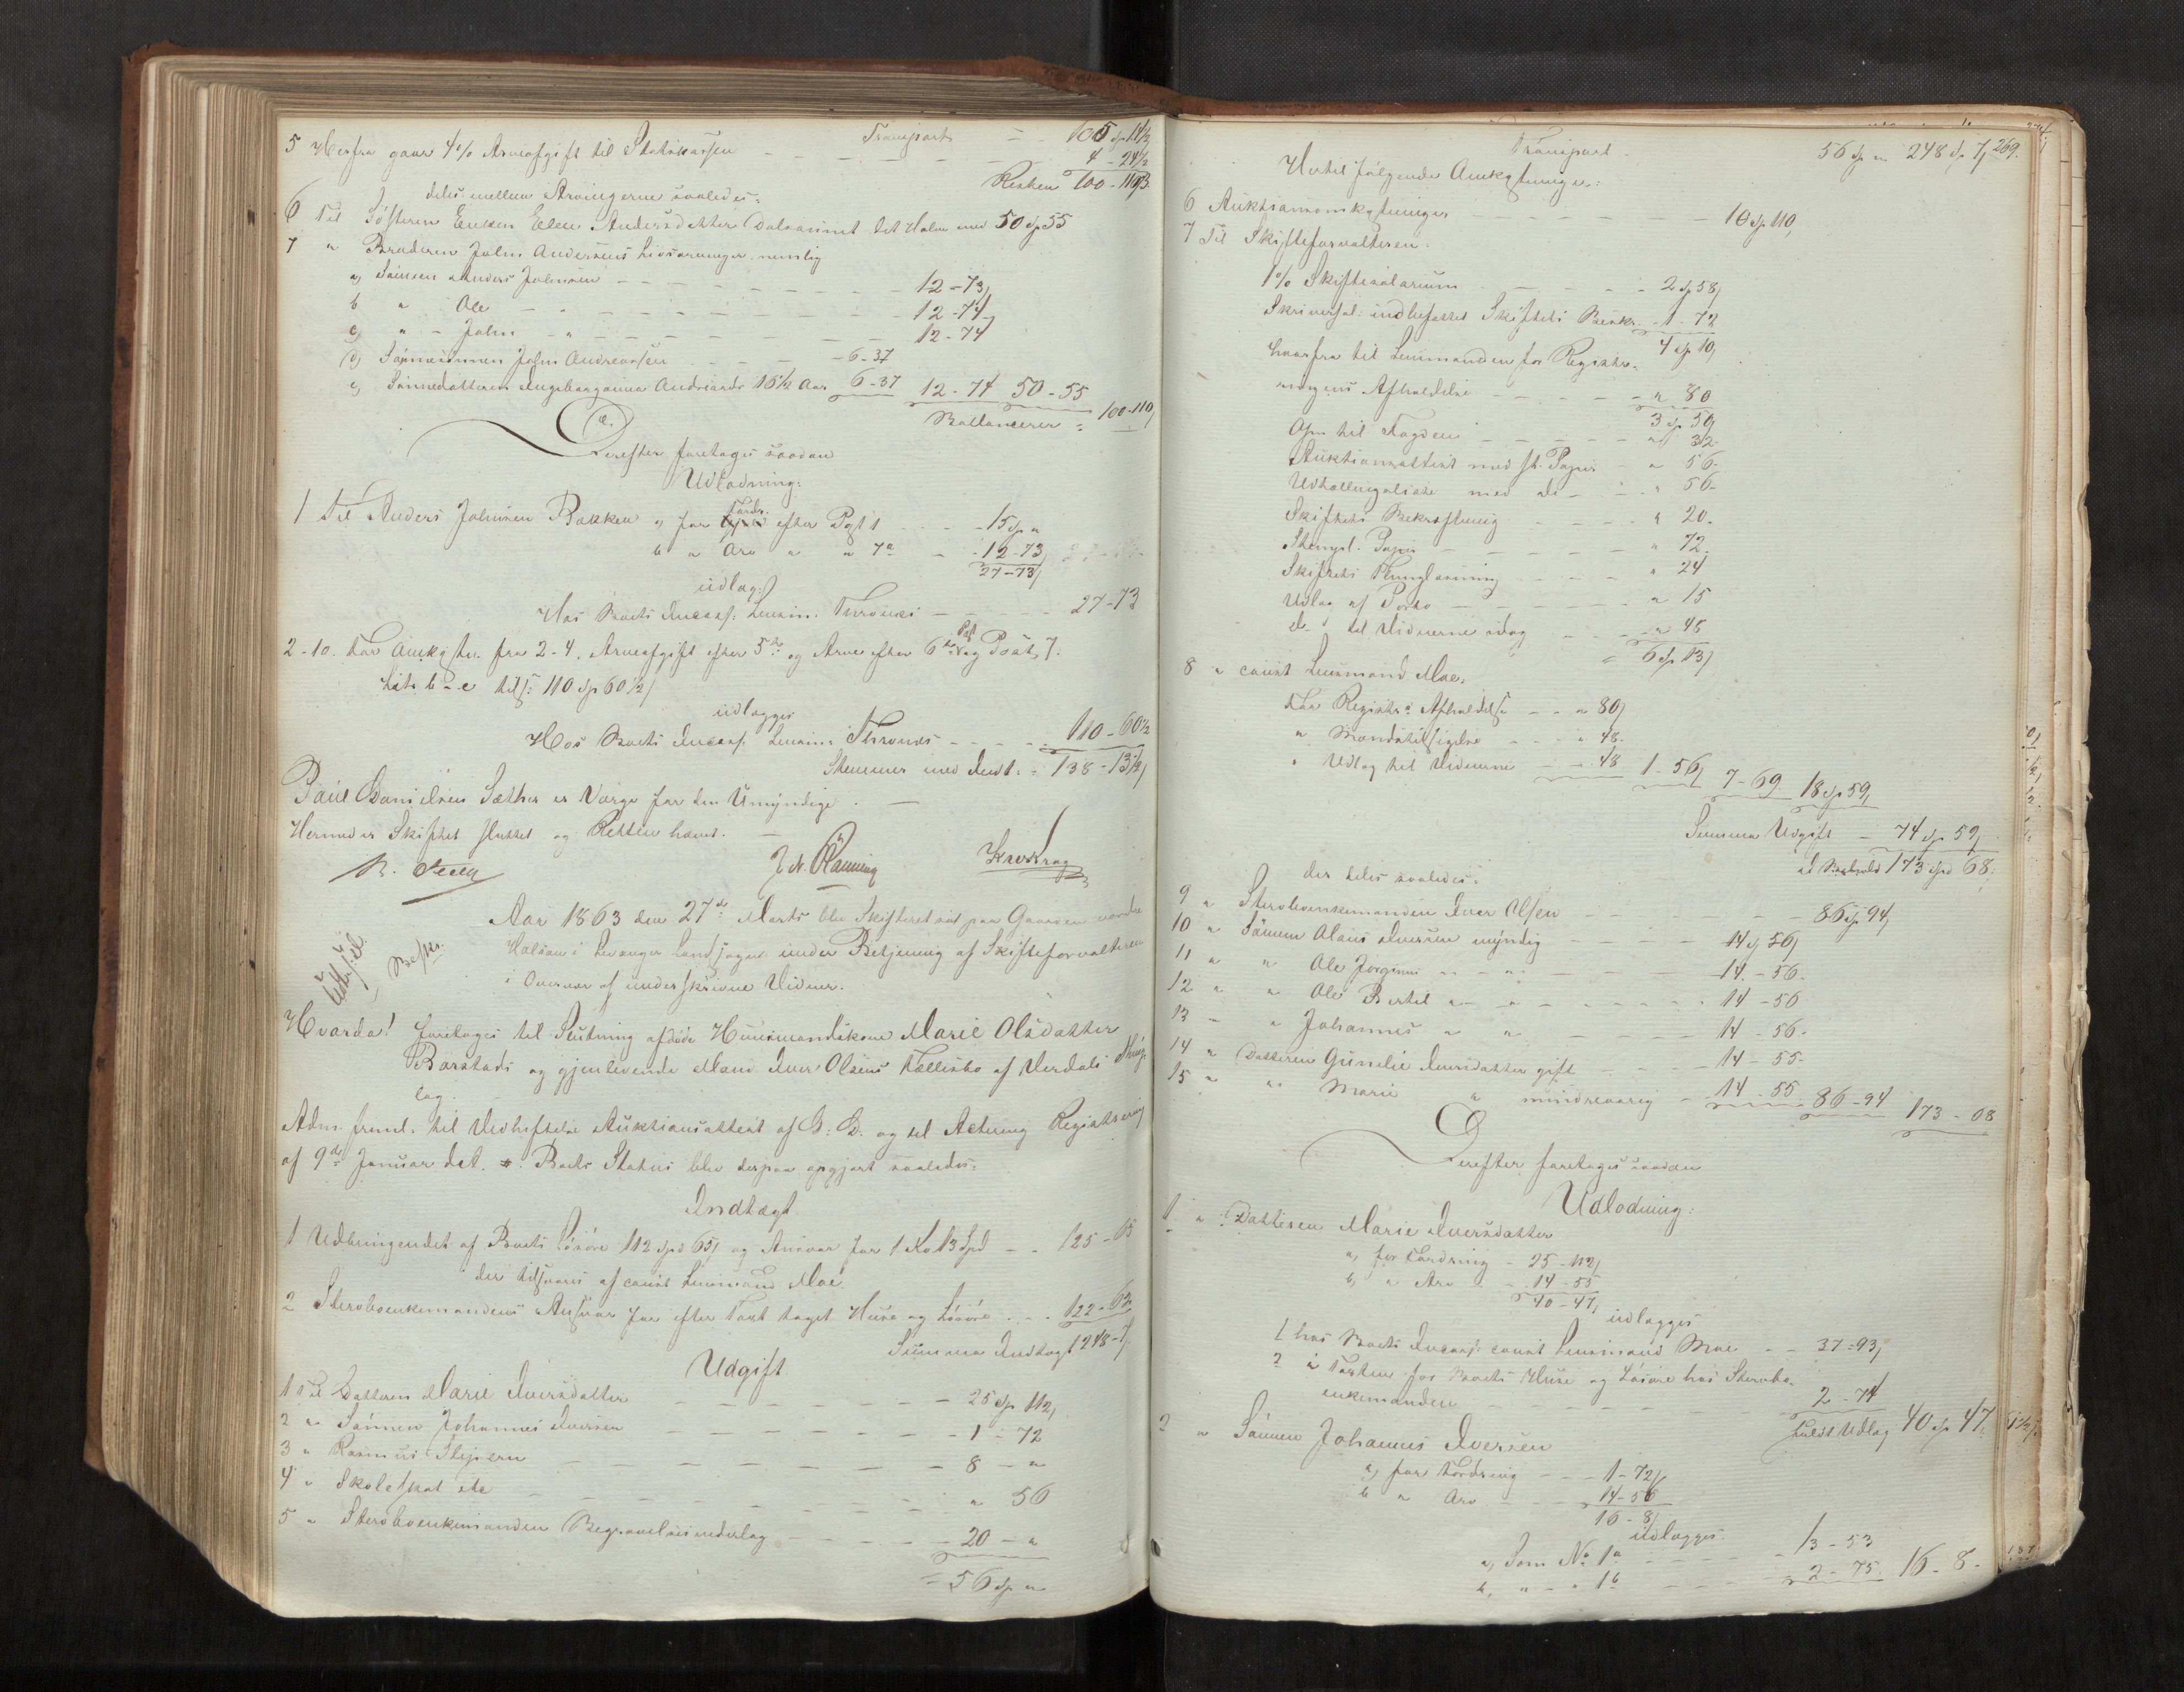 Transport - 105 sp 14½
5 Herfra gaar 4% Arveafgift til Statskassen - - - 4 - 24½
Resten 100 - 110
deles mellem Arvingerne saaledes:
6 Til Søsteren Enken Elen Andersdatter 50 sp 55
7 " Broderen John Andersens Livsarvinger nemlig
a, Sønnen Anders Johnsen - - - 12 - 73
b " Ole - " - - - 12 - 74
c, " - John - " - - - 12 - 74
d, Sønnesønnen John Andreassen - - 6 - 37
e, Sønnedatteren Ingeborganna Andreasdr 16½ Aar 6 - 37 12 - 74 50 - 55
Ballancerer = 100 - 110
Derefter foretoges saadan
Udlodning:
1 Til Anders Johnsen Bakken a, for Fordr. efter Pgt 1 - - 15 sp "
b " Arv " " 7a - - 12 - 73
27 - 73
udlæg:
Hos Boets Incass: Lensm: - - - 27 - 73
2-10. For Omkostn. fra 2-4, Arveafgift efter 5te og Arv efter 6te og Post 7.
Litr b - e tils: 110 sp 60½
udlægges
Hos Boets Incass: Lensm: - - - 110 - 60½
Stemmer med Indt: = 138 - 13½
Paul Danielsen Sæther er Værge for den Umyndige. -
Hermed er Skiftet sluttet og Retten hævet. -
Aar 1863 den 27de Marts blev Skifteret sat paa Gaarden nordre
Halsan i Levanger Landsogn under Betjening af Skifteforvalteren
i Overvær af underskrevne Vidner.
Beskr.
Hvorda! foretoges til Slutning afdøde Huusmandskone Marie Olsdatter
Barstads og gjenlevende Mand Iver Olsens Fællesbo af Verdals Thing-
lag.
Adm. freml. til Vedheftelse Auktionsattest af D: D. og til Actering Registrering
af 9de Januar d.A. Boets Status blev derpaa opgjort saaledes:
Indtægt
1 Udbringendet af Boets Løsøre 112 spd 65 og Ansvar for 1 Ko 13 Spd - - 125 - 65
der tilsvares af const Lensmand Moe
2 Stervboenkemandens Ansvar for efter Taxt taget Huse og Løsøre - - 122 - 62
Summa Indtægt 248 - 7
Udgift
1 Til Datteren Marie Iversdatter - - - 25 sp 112
2 " Sønnen Johannes Iversen - - - 1 - 72
3 " Rasmus - - - 8 - "
4 " Skoleskat etc - - - " 56
5 " Stervboenkemanden Begravelsesudlæg - - - 20 - "
= 56 sp "
269.
Transport - 56 sp " 248 sp 7
Hertil følgende Omkostninger:
6 Auktionsomkostninger - - - 10 sp 110
7 Til Skifteforvalteren:
1% Skiftesalarium - - - 2 sp 58
Skriversal: indbefattet Skiftets Beskr. - 1 - 72
4 sp 10
hvorfra til Lensmanden for Registre-
ringens Afholdelse - - - " 80
3 sp 50
til Fogden - - - " 32
Auktionsattest med st. Papir - " 56
med do - - " 56
Skiftets Bekræftning - - " 20
Stempl. Papir - - - " 72
Skiftets - - " 24
Udlæg af Porto - - - " 15
do til Vidnerne idag - - " 48
= 6 sp 13
8 " const Lensmand Moe.
For Registr: Afholdelse - - " 80
" - - " 48
" Udlæg til Vidnerne - - 48 1 - 56 7 - 69 18 sp 59
Summa Udgift - 74 sp 59
173 spd 68
der deles saaledes:
9 " Stervboenkemanden Iver Olsen - - - 86 sp 94
10 " Sønnen Olaus Iversen myndig - - - 14 sp 56
11 " " Ole Jørginus " - " - - 14 - 56
12 " " Ole Bertel " - " - - 14 - 56
13 " " Johannes " " - - 14 - 56
14 " Datteren Gunelie Iversdatter gift - - 14 - 55
15 " " Marie " mindreaarig - 14 - 55 86 - 94 173 - 68
Derefter foretoges saadan
Udlodning:
1 " Datteren Marie Iversdatter
a, for Fordring - 25 - 112
b, " Arv - 14 - 55
40 - 47
udlægges
1 hos Boets Incass: const Lensmand Moe - - 37 - 93
2 i Taxten for Boets Huse og Løsøre hos Stervbo-
enkemanden - - - 2 - 74
fuldt Udlæg 40 sp 47
2 " Sønnen Johannes Iversen
a, for Fordring - - - 1 - 72
b " Arv - - - 14 - 56
16 - 8
udlægges
a, Som No 1a - - - 13 - 53
b, " - " 1b - - - 2 - 75 16 - 8